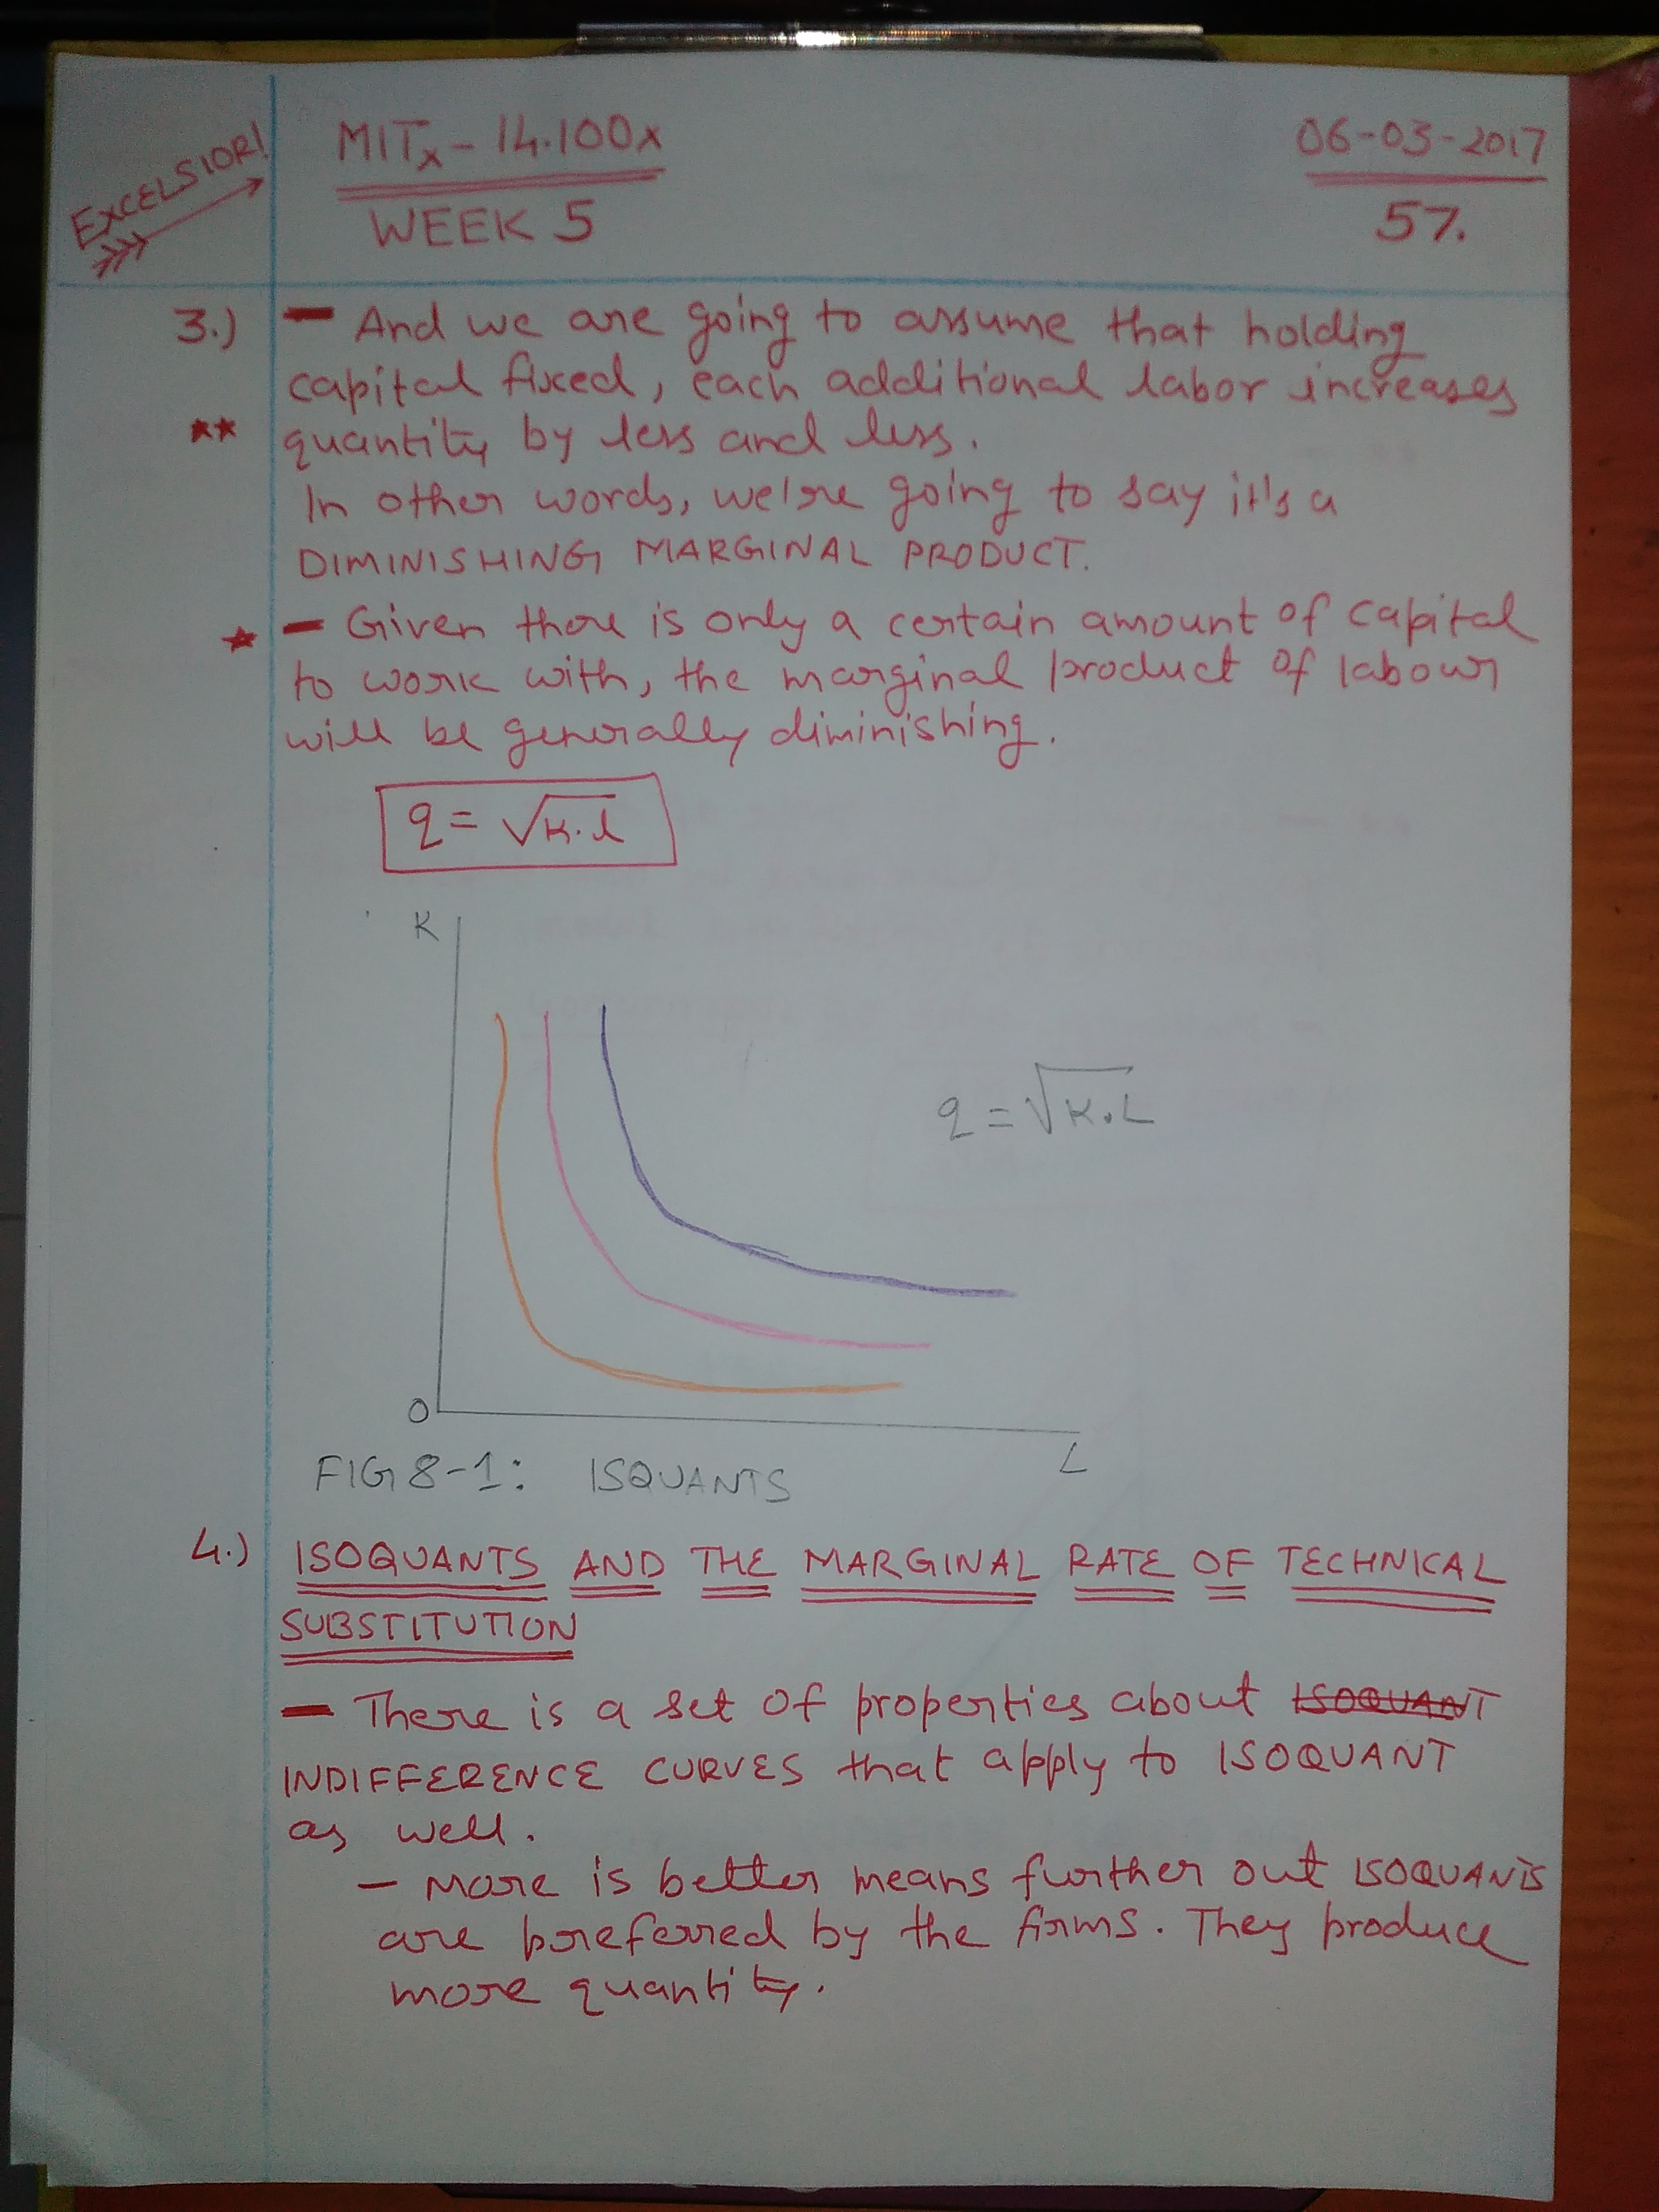 EXCELSIOR!
MITx - 14.100x
WEEK 5
06-03-2017
57.
3.) - And we are going to assume that holding
capital fixed, each additional labor increases
** quantity by less and less.
In other words, we're going to say it's a
DIMINISHING MARGINAL PRODUCT.
* - Given there is only a certain amount of capital
to work with, the marginal product of labour
will be generally diminishing.
q = √K.l
K
q = √K.L
O
L
FIG 8-1: ISQUANTS
4.) ISOQUANTS AND THE MARGINAL RATE OF TECHNICAL
SUBSTITUTION
- There is a set of properties about ISOQUANT
INDIFFERENCE CURVES that apply to ISOQUANT
as well.
- More is better means further out ISOQUANTS
are preferred by the firms. They produce
more quantity.